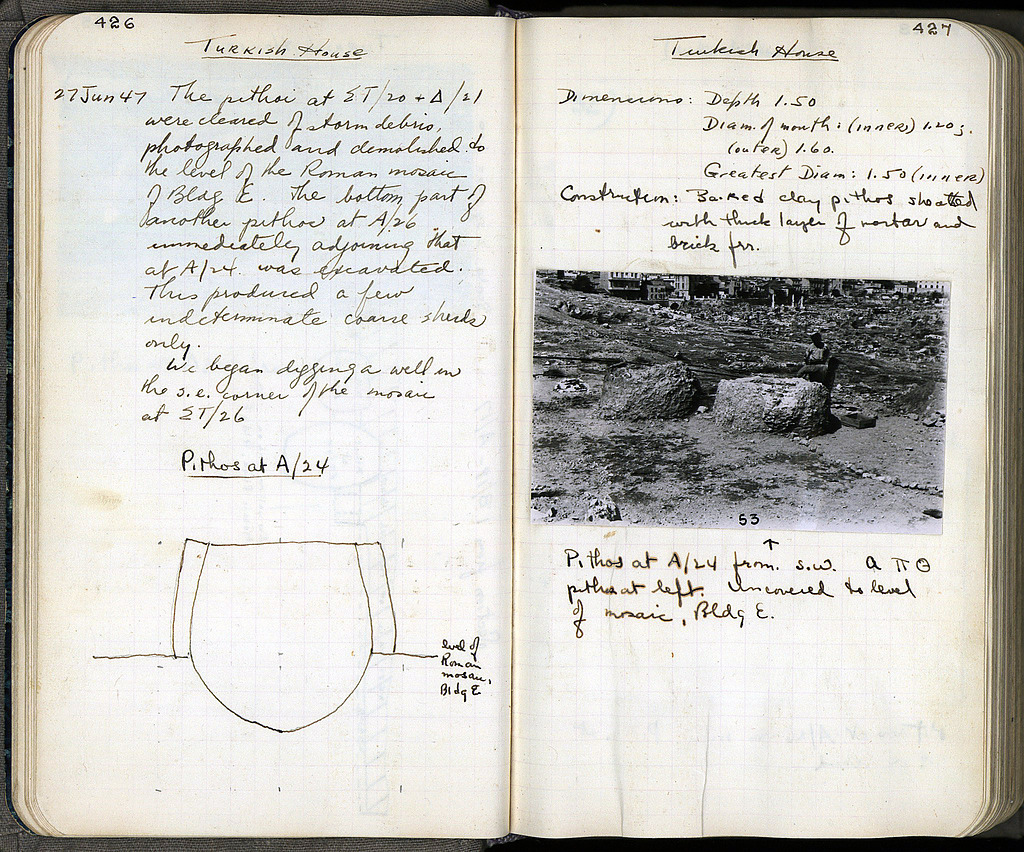 426
Turkish House
27 Jun 47 The pithoi at ΣΤ/20 + Δ/21
were cleared of storm debris,
photographed and demolished to
the level of the Roman mosaic
of Bldg E. The bottom part of
another pithos at A/26
immediately adjoining that
at A/24 was excavated.
This produced a few
indeterminate coarse sherds
only.
We began digging a well in
the s.e. corner of the mosaic
at ΣΤ/26
Pithos at A/24
level of
Roman
mosaic,
Bldg E
427
Turkish House
Dimensions: Depth 1.50
Diam. of mouth: (inner) 1.20;
(outer) 1.60.
Greatest Diam: 1.50 (inner)
Construction: Baked clay pithos sheathed
with thick layer of mortar and
brick frr.
53
↑
Pithos at A/24 from s.w. A Π Θ
pithos at left. Uncovered to level
of mosaic, Bldg E.